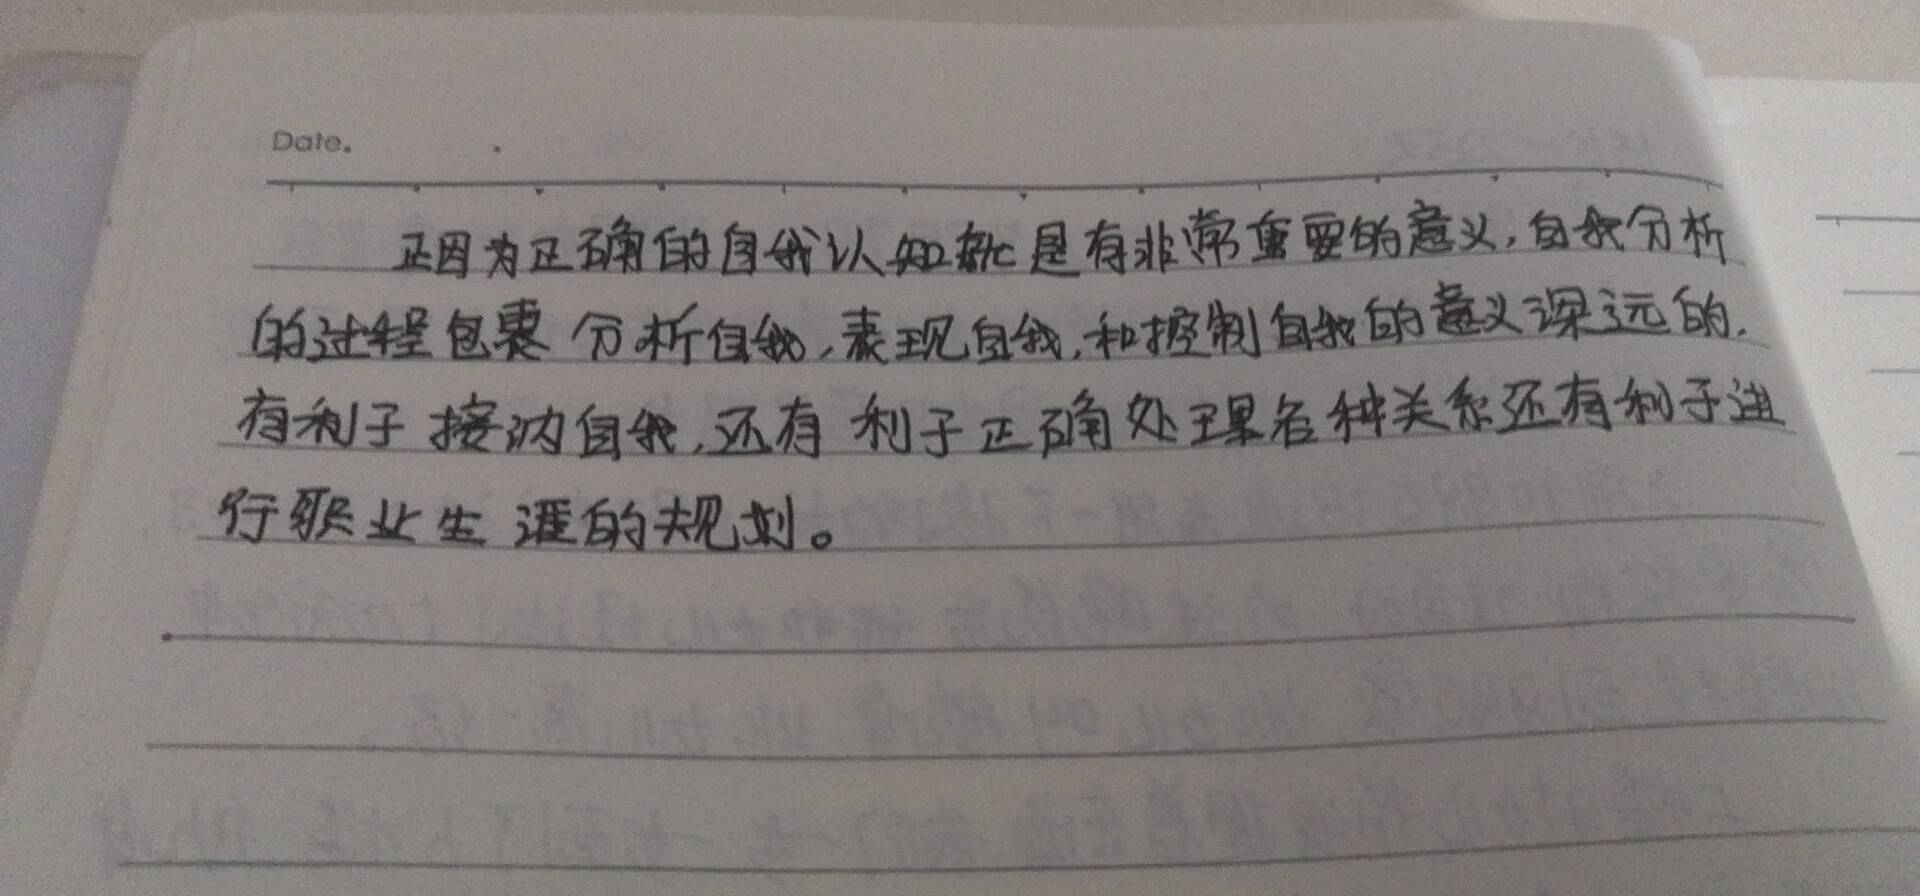 Date.
正因为正确的自我认知就是有非常重要的意义,自我分析
的过程包裹分析自我,表现自我,和控制自我的意义深远的.
有利于接纳自我,还有利于正确处理各种关系还有利于进
行职业生涯的规划。